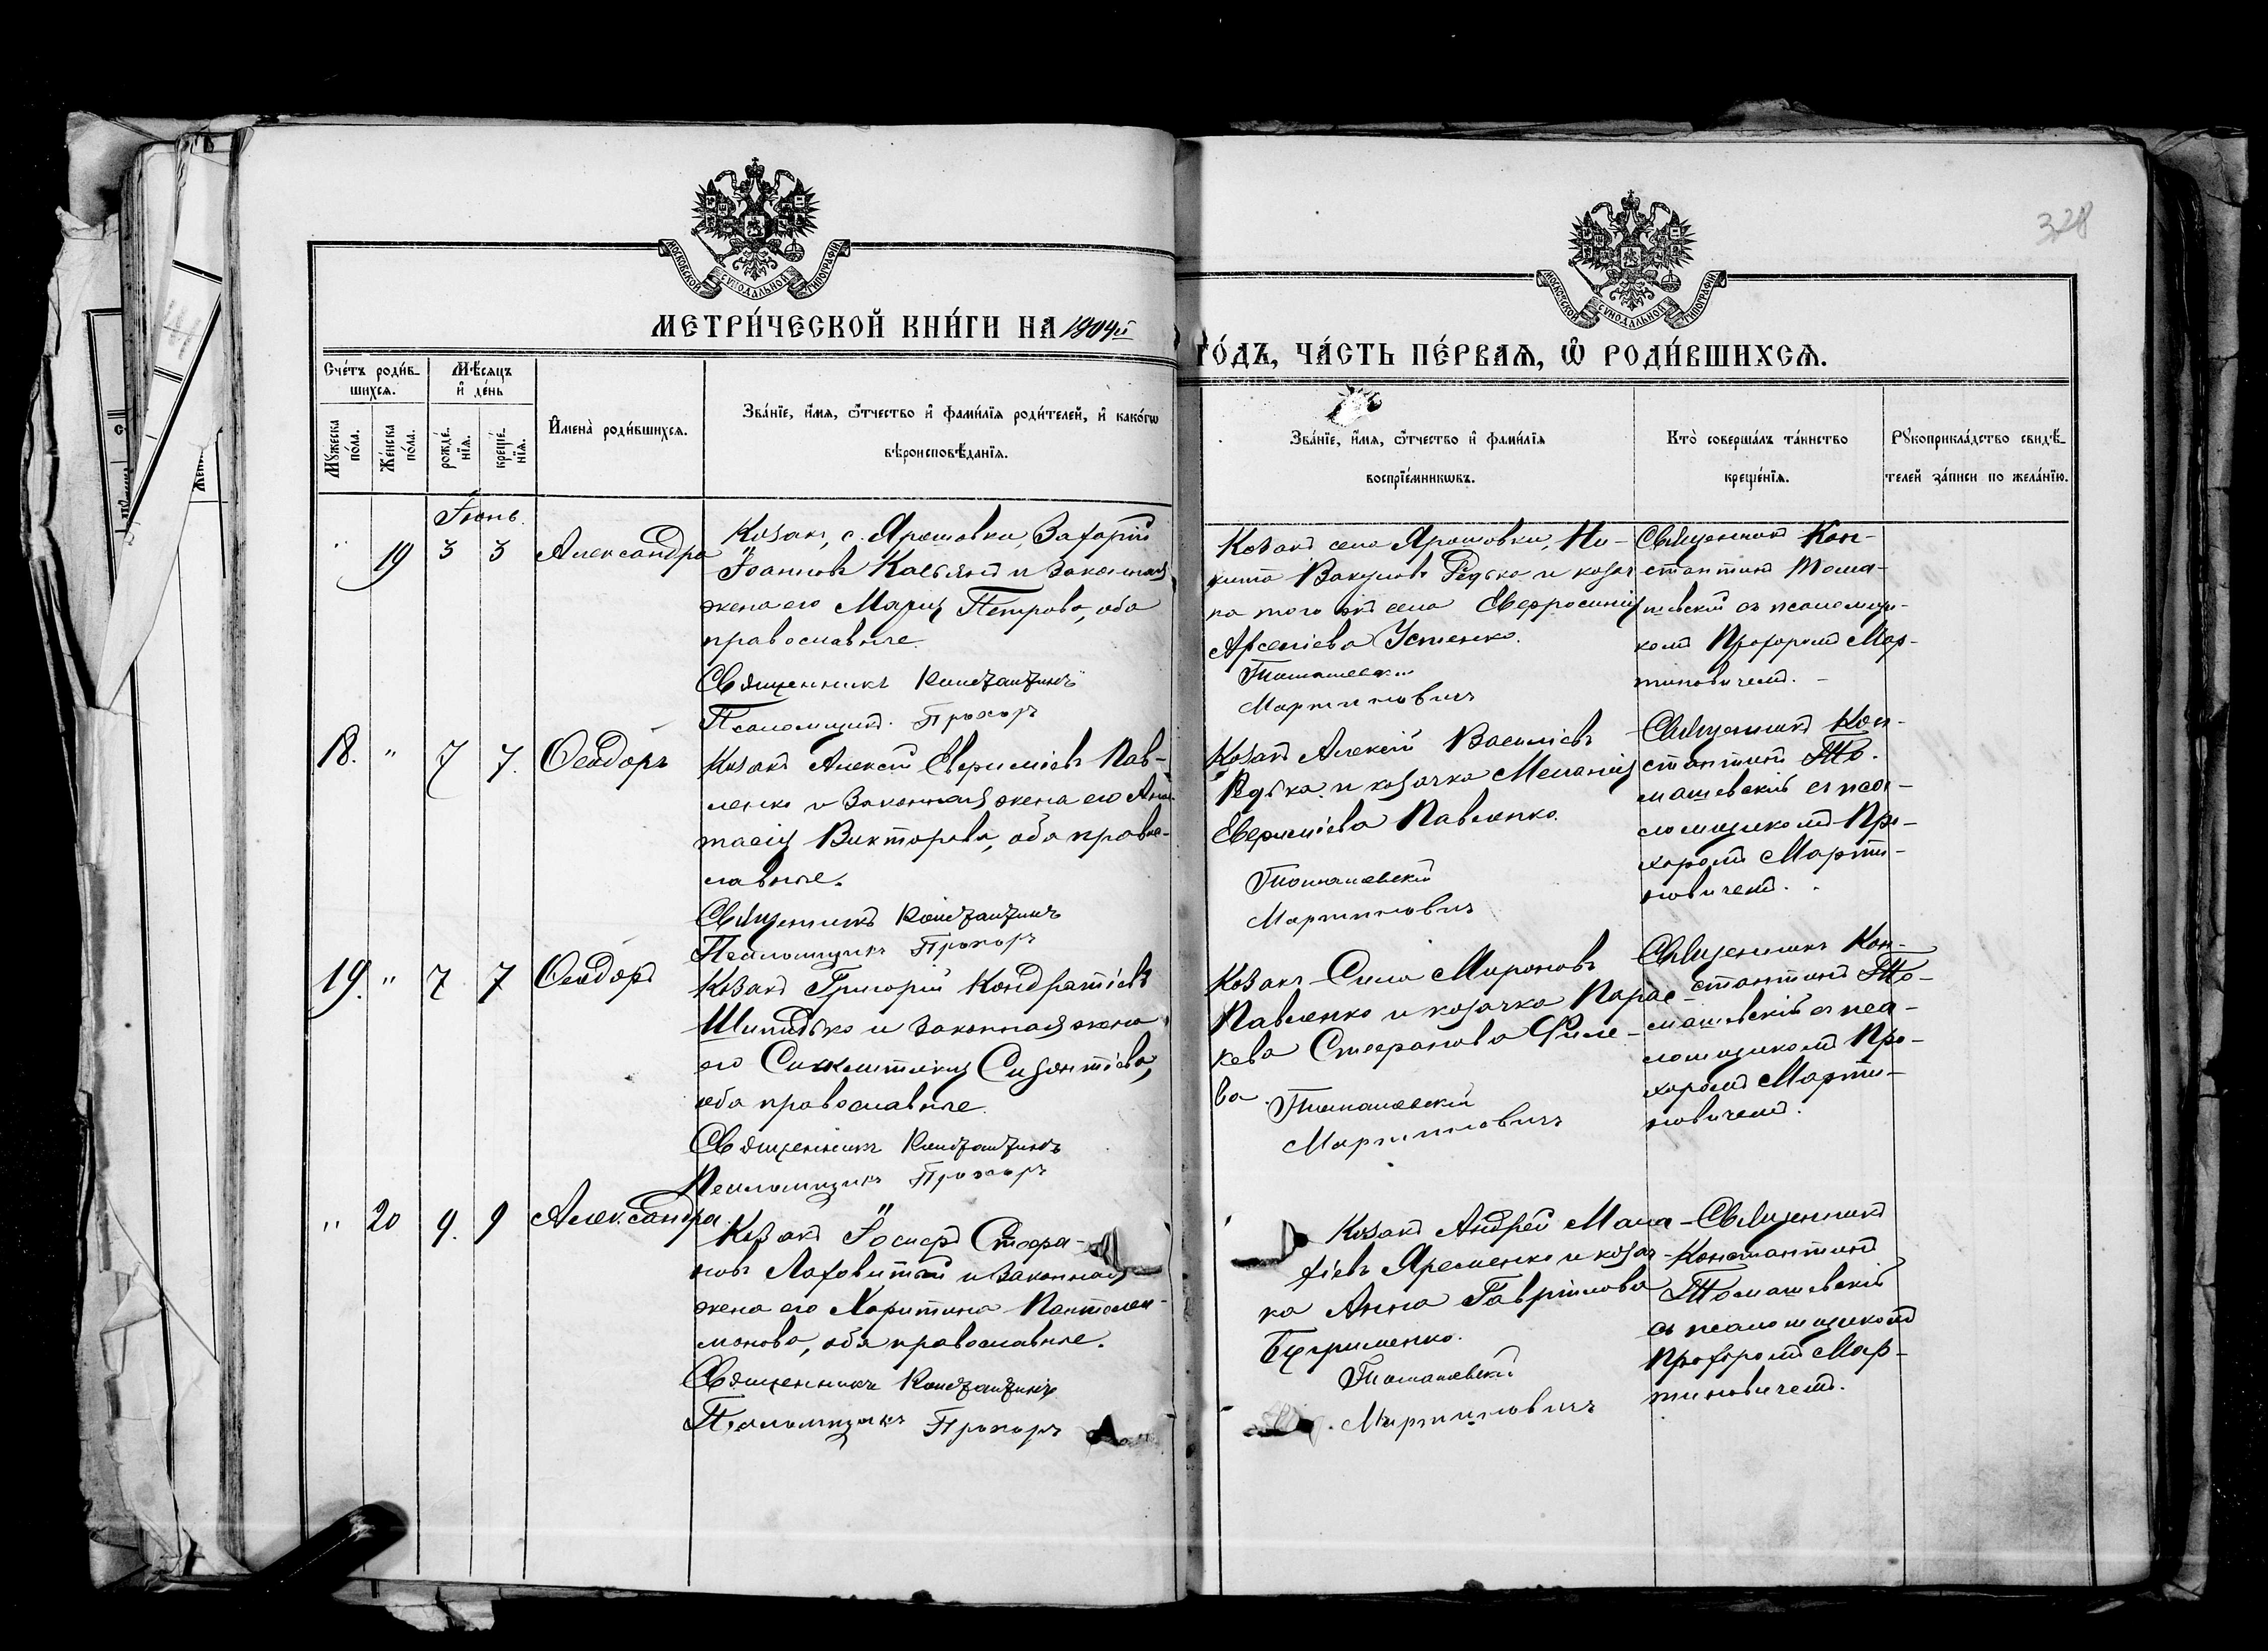 328
МОСКОВСКОЙ СУНОДАЛЬНОЙ ТИПОГРАФІИ
МОСКОВСКОЙ СУНОДАЛЬНОЙ ТИПОГРАФІИ
МЕТРИ́ЧЕСКОЙ КНИ́ГИ НА 1904й
ГО́ДЪ, ЧА́СТЬ ПЕ́РВАЯ, Ѡ РОДИ́ВШИХСЯ.
Сче́тъ роди́в-
шихся.
Мѣ́сяцъ
и де́нь
Му́жеска
по́ла.
Же́нска
по́ла.
рожде́-
нія.
креще́-
нія.
Имена̀ роди́вшихся.
Зва́ніе, и́мя, ѻ́тчество и фами́лія роди́телей, и како́гѡ
вѣроисповѣ́данія.
Зва́ніе, и́мя, ѻ́тчество и фами́лія
воспріе́мникѡвъ.
Кто̀ соверша́лъ та́инство
креще́нія.
Рꙋкоприкла́дство свидѣ́-
телей за́писи по жела́нію.
Іюнь.
" 19 3 3 Александра
Козакъ, с. Ярошовки, Захарій
Іоанновъ Касьянъ и законная
жена его Марія Петрова, оба
православные.
Священникъ Константинъ
Псаломщикъ Прохоръ
Козакъ села Ярошовки, Ни-
кита Вакуловъ Редько и козач-
ка того же села Евфросинія
Арсеніева Устенко.
Томашевскій
Мартиновичъ
Священникъ Кон-
стантинъ Тома-
шевскій съ псаломщи-
комъ Прохоромъ Мар-
тиновичемъ.
18. " 7 7. Ѳеодоръ
Козакъ Алексій Евфиміевъ Пав-
ленко и законная жена его Ана-
тасія Викторова, оба право-
славные.
Священникъ Константинъ
Псаломщикъ Прохоръ
Козакъ Алексій Василіевъ
Редька и козачка Меланія
Евфиміева Павленко.
Томашевскій
Мартиновичъ
Священникъ Кон-
стантинъ То-
машевскій съ пса-
ломщикомъ Про-
хоромъ Марти-
новичемъ.
19. " 7 7 Ѳеодоръ
Козакъ Григорій Кондратіевъ
и законная жена
его Синклитикія
оба православные.
Священникъ Константинъ
Псаломщикъ Прохоръ
Козакъ Сила Мироновъ
Павленко и козачка Парас-
кева Стефанова Филе-
ва.
Томашевскій
Мартиновичъ
Священникъ Кон-
стантинъ То-
машевскій съ пса-
ломщикомъ Про-
хоромъ Марти-
новичемъ.
" 20 9. 9 Александра
Козакъ Іосифъ Стефа-
новъ и законная
жена его Харитина Пантелеи-
монова, оба православные.
Священникъ Константинъ
Псаломщикъ Прохоръ
Козакъ Андрей Мала-
хіевъ Яременко и козач-
ка Анна Гавріилова
Томашевскій
Мартиновичъ
Священникъ
Константинъ
Томашевскій
съ псаломщикомъ
Прохоромъ Мар-
тиновичемъ.